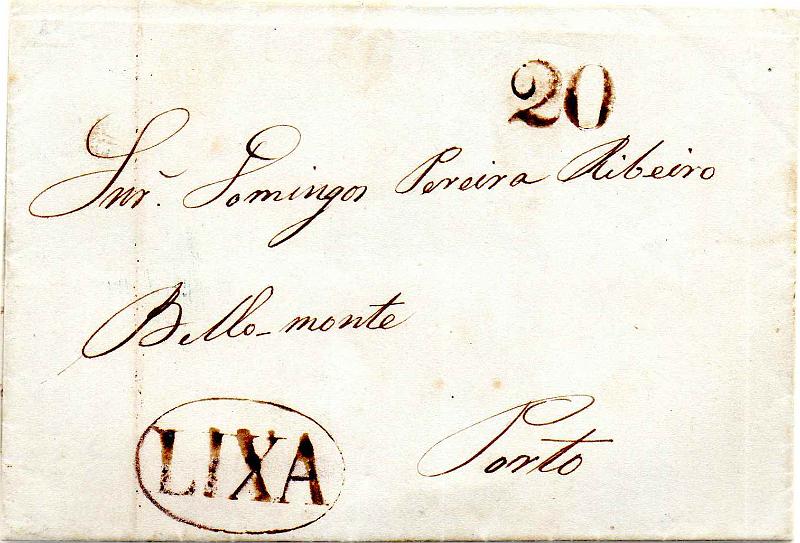 20
Snr. Domingos Pereira Ribeiro
Bello-monte
Porto
LIXA